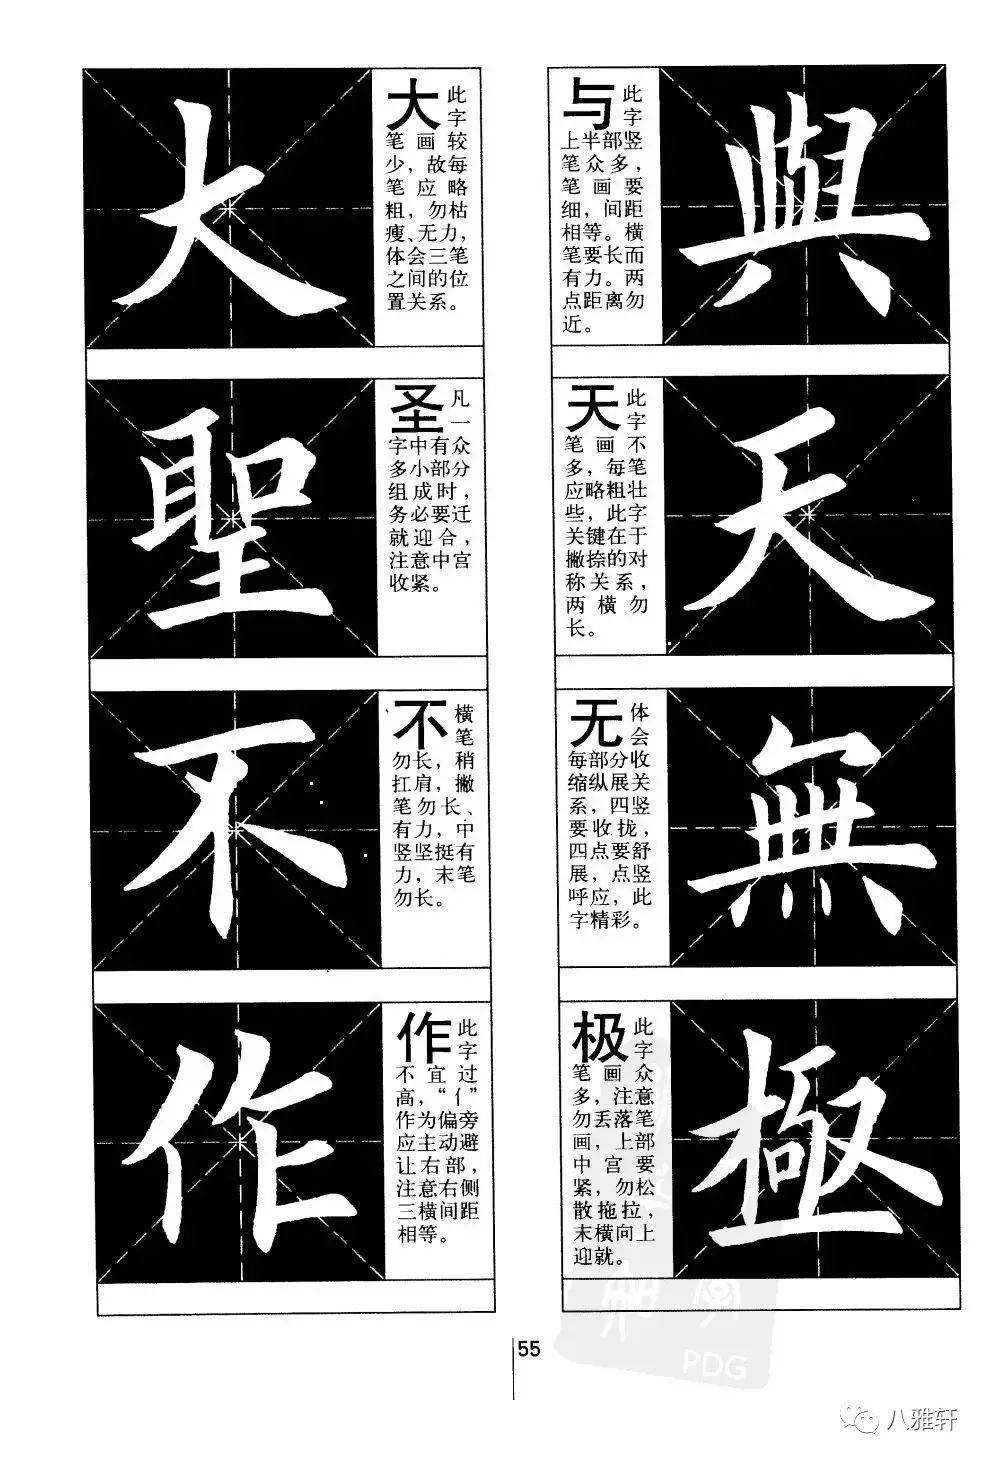 與
与 此字
上半部竖
笔众多，
笔画要
细，间距
相等。横
笔要长而
有力。两
点距离勿
近。
天
天 此字
笔画不
多，每笔
应略粗壮
些，此字
关键在于
撇捺的对
称关系，
两横勿
长。
無
无 体会
每部分收
缩纵展关
系，四竖
要收拢，
四点要舒
展，点竖
呼应，此
字精彩。
極
极 此字
笔画众
多，注意
勿丢落笔
画，上部
中宫要
紧，勿松
散拖拉，
末横向上
迎就。
大
大 此字
笔画较
少，故每
笔应略
粗，勿枯
瘦、无力，
体会三笔
之间的位
置关系。
聖
圣 凡一
字中有众
多小部分
组成时，
务必要迁
就迎合，
注意中宫
收紧。
不
不 横笔
勿长，稍
扛肩，撇
笔勿长、
有力，中
竖坚挺有
力，末笔
勿长。
作
作 此字
不宜过
高，“亻”
作为偏旁
应主动避
让右部，
注意右侧
三横间距
相等。
55
PDG
八雅轩